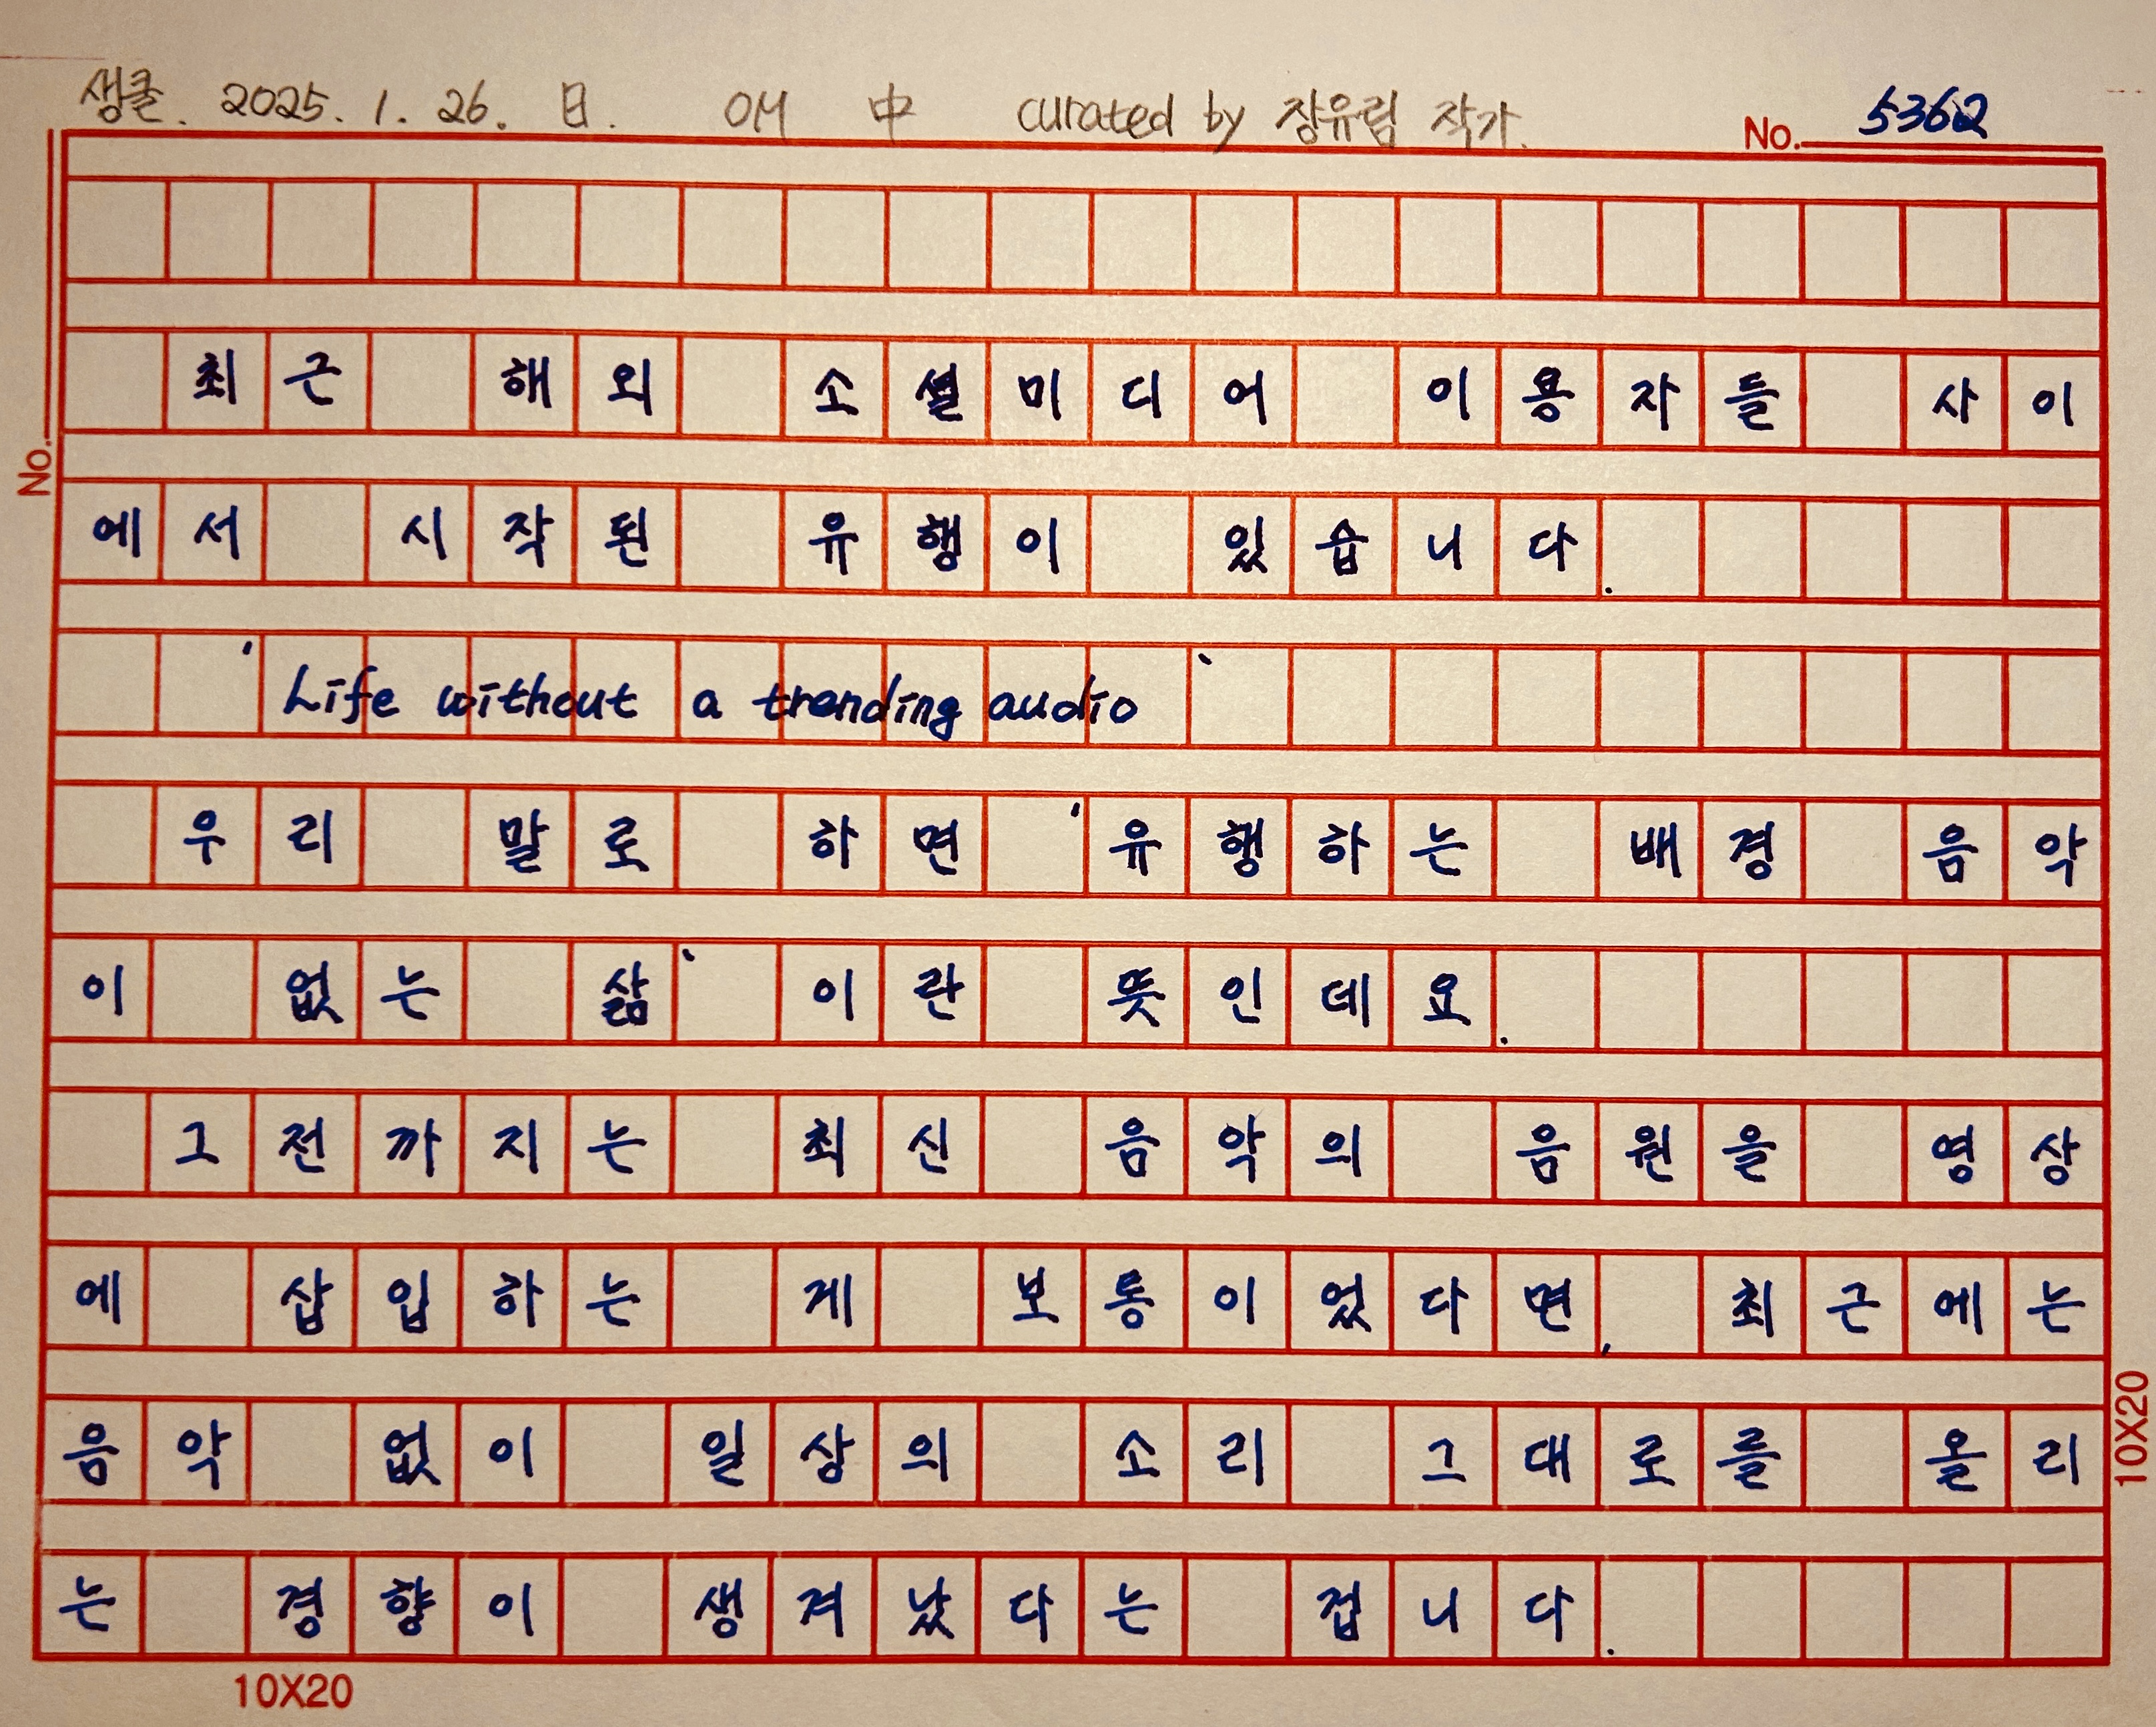 생클. 2025. 1. 26. 日. OM 中 curated by 장유림 작가.
No. 5362
No.
최근 해외 소셜미디어 이용자들 사이
에서 시작된 유행이 있습니다.
'Life without a trending audio'
우리 말로 하면 '유행하는 배경 음악
이 없는 삶' 이란 뜻인데요.
그전까지는 최신 음악의 음원을 영상
에 삽입하는 게 보통이었다면, 최근에는
음악 없이 일상의 소리 그대로를 올리
는 경향이 생겨났다는 겁니다.
10X20
10X20